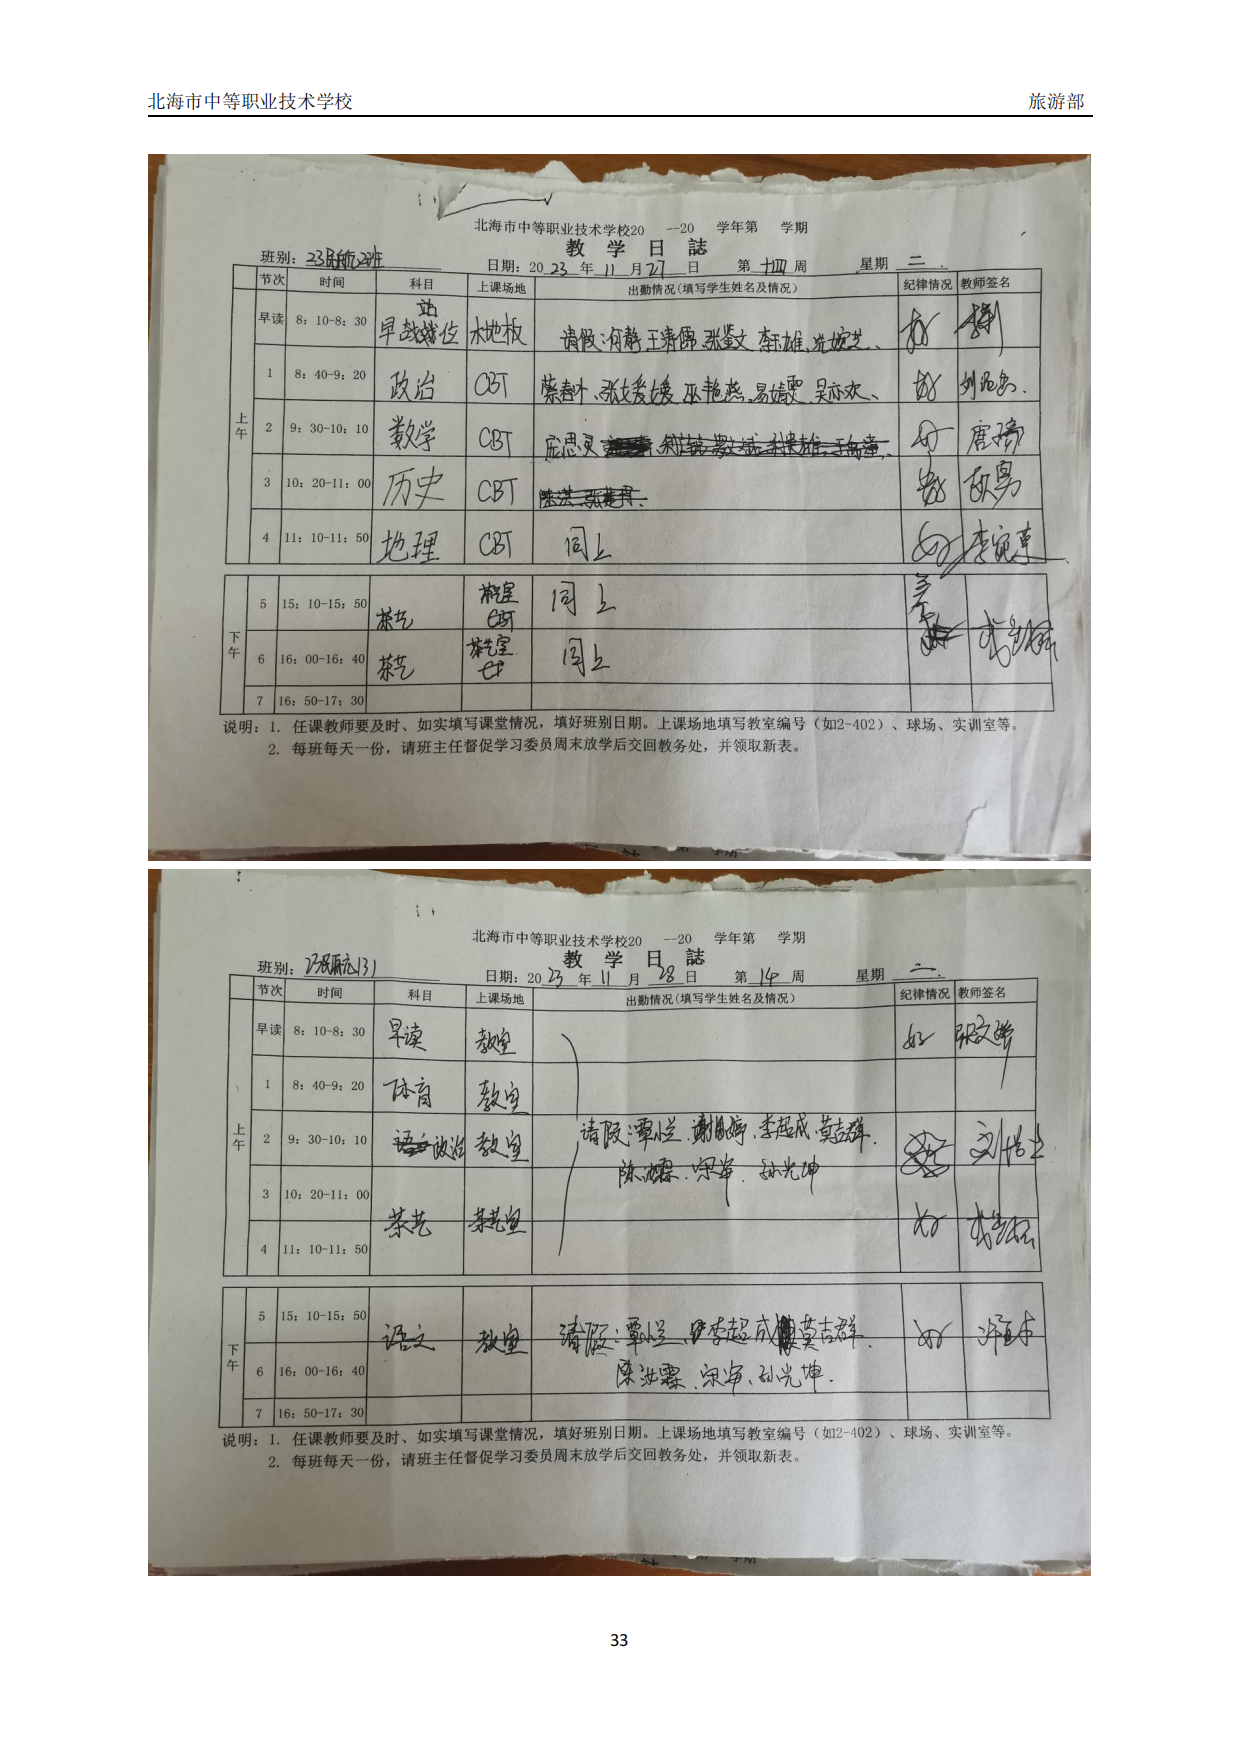 北海市中等职业技术学校 旅游部
北海市中等职业技术学校20 —20 学年第 学期
教 学 日 誌
班别: 23民航 日期: 2023年11月27日 第十四周 星期二
节次 时间 科目 上课场地 出勤情况(填写学生姓名及情况) 纪律情况 教师签名
上午
早读 8: 10-8: 30 站位 木地板 请假: 何静、王 、张 文、李玉雄、
1 8: 40-9: 20 政治 CBT 蔡春叶、张媛媛、巫艳燕、易婧雯、吴亦欢、 好
2 9: 30-10: 10 数学 CBT 庄思灵 好 唐
3 10: 20-11: 00 历史 CBT 好
4 11: 10-11: 50 地理 CBT 同上 好
下午
5 15: 10-15: 50 茶艺 茶艺室 同上
6 16: 00-16: 40 茶艺 茶艺室 同上
7 16: 50-17: 30
说明: 1. 任课教师要及时、如实填写课堂情况, 填好班别日期。上课场地填写教室编号(如2-402)、球场、实训室等。
2. 每班每天一份, 请班主任督促学习委员周末放学后交回教务处, 并领取新表。
北海市中等职业技术学校20 —20 学年第 学期
教 学 日 誌
班别: 23民航 日期: 2023年11月28日 第14周 星期二
节次 时间 科目 上课场地 出勤情况(填写学生姓名及情况) 纪律情况 教师签名
上午
早读 8: 10-8: 30 早读 教室 好
1 8: 40-9: 20 体育 教室
2 9: 30-10: 10 政治 教室 请假: 覃 、谢 婷、李超成、莫吉群、
陈 霖、宋 、孙光坤
3 10: 20-11: 00 茶艺 茶艺室 好
4 11: 10-11: 50
下午
5 15: 10-15: 50 语文 教室 请假: 覃 、李超成、莫吉群、 好
6 16: 00-16: 40 陈 霖、宋 、孙光坤.
7 16: 50-17: 30
说明: 1. 任课教师要及时、如实填写课堂情况, 填好班别日期。上课场地填写教室编号(如2-402)、球场、实训室等。
2. 每班每天一份, 请班主任督促学习委员周末放学后交回教务处, 并领取新表。
33